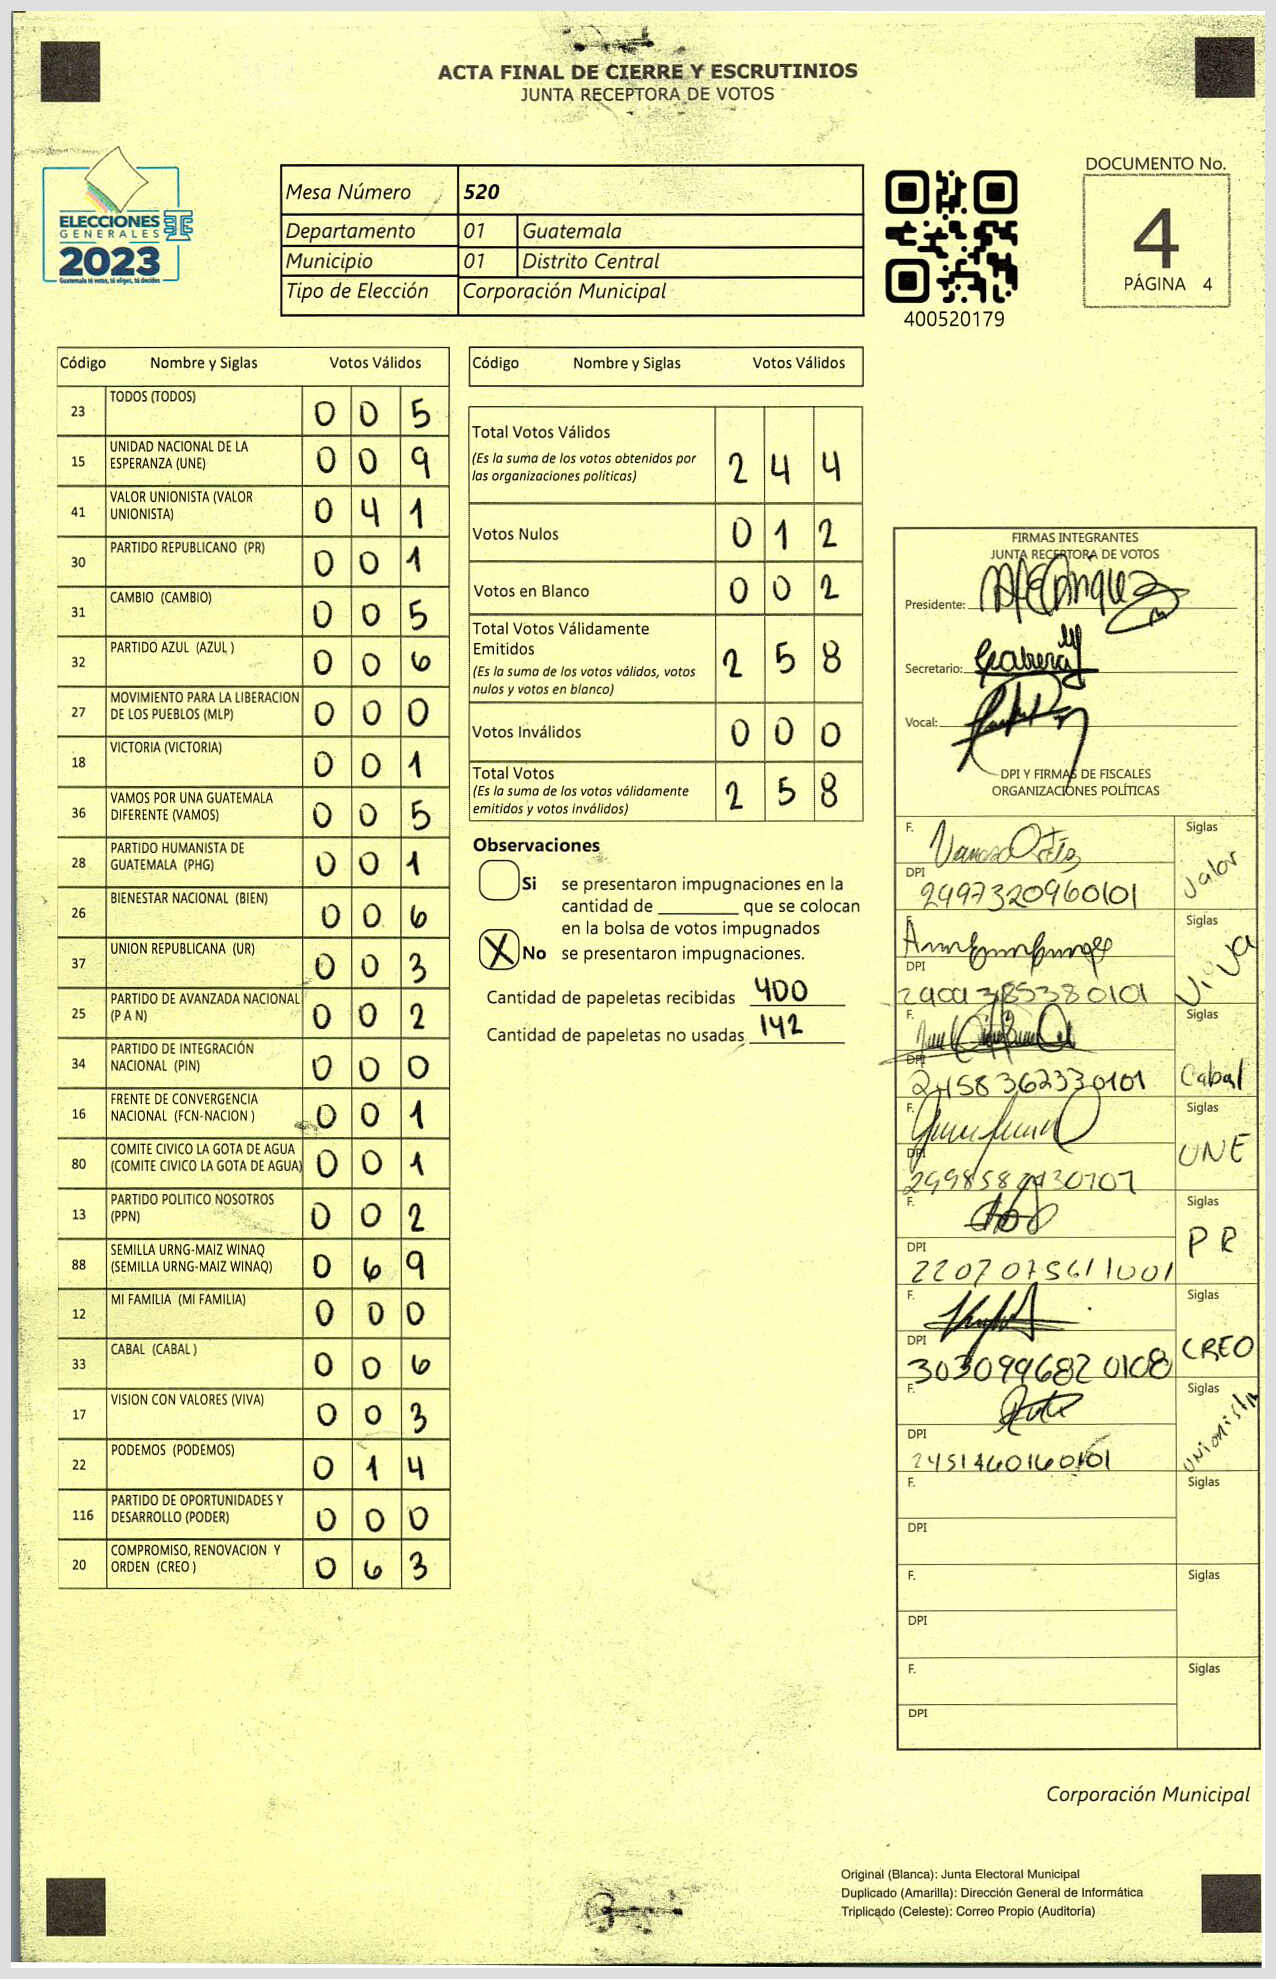 ACTA FINAL DE CIERRE Y ESCRUTINIOS
JUNTA RECEPTORA DE VOTOS
ELECCIONES
GENERALES
2023
Guatemala tú votas, tú eliges, tú decides
Mesa Número 520
Departamento 01 Guatemala
Municipio 01 Distrito Central
Tipo de Elección Corporación Municipal
400520179
DOCUMENTO No.
4
PÁGINA 4
Código Nombre y Siglas Votos Válidos
23 TODOS (TODOS) 0 0 5
15 UNIDAD NACIONAL DE LA ESPERANZA (UNE) 0 0 9
41 VALOR UNIONISTA (VALOR UNIONISTA) 0 4 1
30 PARTIDO REPUBLICANO (PR) 0 0 1
31 CAMBIO (CAMBIO) 0 0 5
32 PARTIDO AZUL (AZUL ) 0 0 6
27 MOVIMIENTO PARA LA LIBERACION DE LOS PUEBLOS (MLP) 0 0 0
18 VICTORIA (VICTORIA) 0 0 1
36 VAMOS POR UNA GUATEMALA DIFERENTE (VAMOS) 0 0 5
28 PARTIDO HUMANISTA DE GUATEMALA (PHG) 0 0 1
26 BIENESTAR NACIONAL (BIEN) 0 0 6
37 UNION REPUBLICANA (UR) 0 0 3
25 PARTIDO DE AVANZADA NACIONAL (P A N) 0 0 2
34 PARTIDO DE INTEGRACIÓN NACIONAL (PIN) 0 0 0
16 FRENTE DE CONVERGENCIA NACIONAL (FCN-NACION ) 0 0 1
80 COMITE CIVICO LA GOTA DE AGUA (COMITE CIVICO LA GOTA DE AGUA) 0 0 1
13 PARTIDO POLITICO NOSOTROS (PPN) 0 0 2
88 SEMILLA URNG-MAIZ WINAQ (SEMILLA URNG-MAIZ WINAQ) 0 6 9
12 MI FAMILIA (MI FAMILIA) 0 0 0
33 CABAL (CABAL ) 0 0 6
17 VISION CON VALORES (VIVA) 0 0 3
22 PODEMOS (PODEMOS) 0 1 4
116 PARTIDO DE OPORTUNIDADES Y DESARROLLO (PODER) 0 0 0
20 COMPROMISO, RENOVACION Y ORDEN (CREO ) 0 6 3
Código Nombre y Siglas Votos Válidos
Total Votos Válidos
(Es la suma de los votos obtenidos por
las organizaciones políticas) 2 4 4
Votos Nulos 0 1 2
Votos en Blanco 0 0 2
Total Votos Válidamente
Emitidos
(Es la suma de los votos válidos, votos
nulos y votos en blanco) 2 5 8
Votos Inválidos 0 0 0
Total Votos
(Es la suma de los votos válidamente
emitidos y votos inválidos) 2 5 8
Observaciones
Si se presentaron impugnaciones en la
cantidad de ________ que se colocan
en la bolsa de votos impugnados
X No se presentaron impugnaciones.
Cantidad de papeletas recibidas 400
Cantidad de papeletas no usadas 142
FIRMAS INTEGRANTES
JUNTA RECEPTORA DE VOTOS
Presidente:
Secretario:
Vocal:
DPI Y FIRMAS DE FISCALES
ORGANIZACIONES POLÍTICAS
F. Siglas
DPI Valor
2997320960101
F. Siglas
DPI Viva
F. Siglas
DPI Cabal
2458362330101
F. Siglas
DPI UNE
F. Siglas
DPI PR
2207075611001
F. Siglas
DPI CREO
3030996820108
F. Siglas
DPI Unionista
2451460160101
F. Siglas
DPI
F. Siglas
DPI
F. Siglas
DPI
Corporación Municipal
Original (Blanca): Junta Electoral Municipal
Duplicado (Amarilla): Dirección General de Informática
Triplicado (Celeste): Correo Propio (Auditoría)